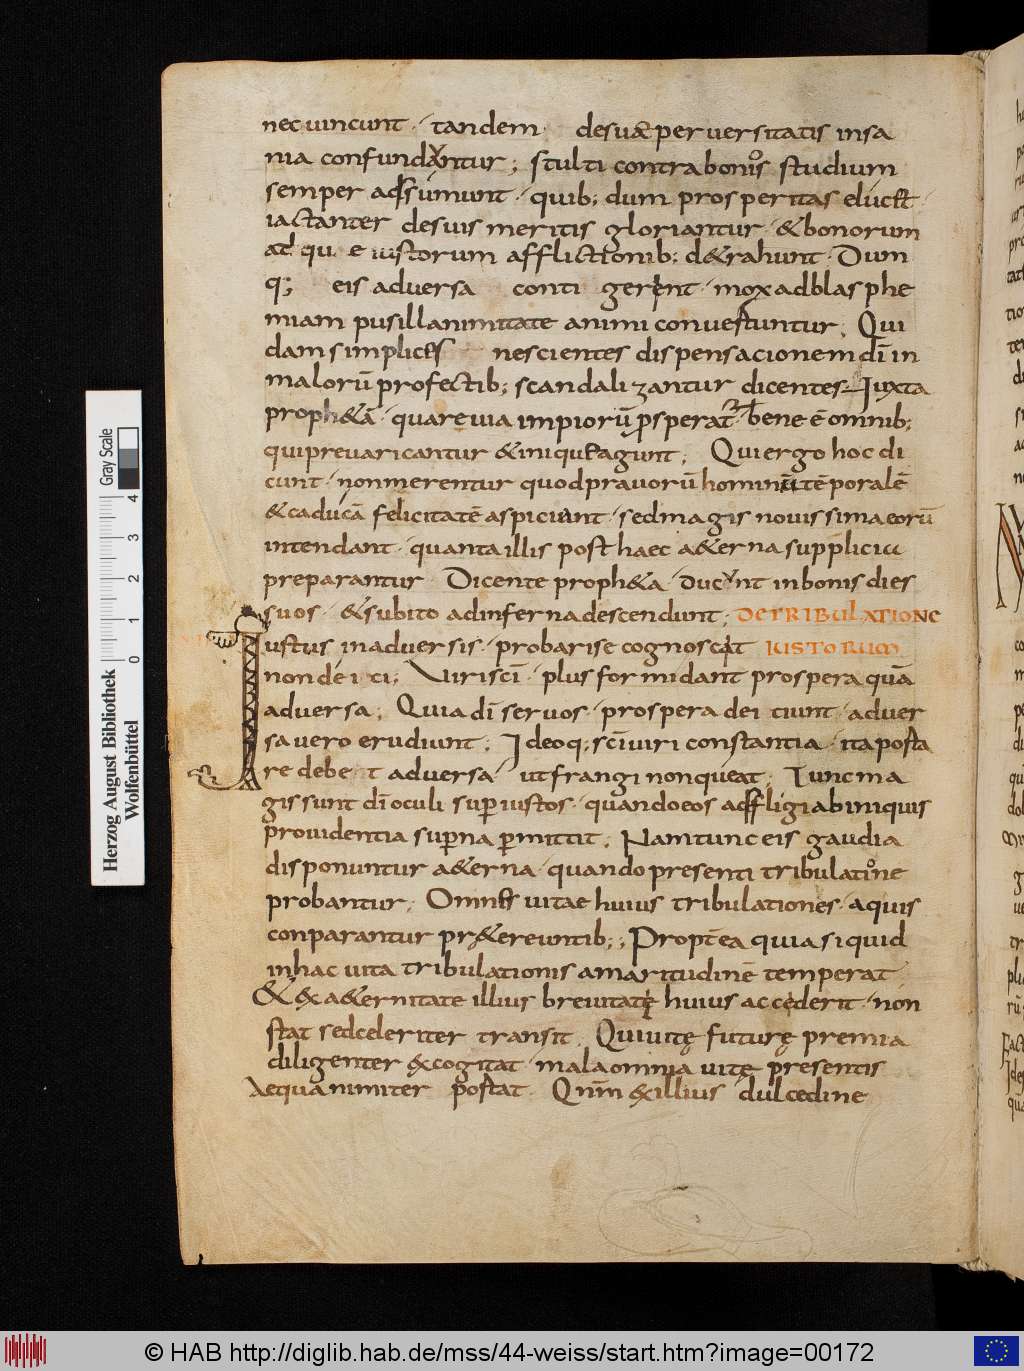 nec uincunt · tandem desuae peruersitatis insa
nia confundantur; stulti contra bonos studium
semper adsumunt · quib; dum prosperitas elucet ·
iactanter desuis meritis gloriantur · & bonorum
at qu e iustorum afflictionib; d&rahunt · Dum
q; eis aduersa conti gerent · mox ad blasphe
miam pusillanimitate animi conuertuntur; Qui
dam simplices nescientes dispensacionem dī in
malorū profectib; scandalizantur dicentes Iuxta
proph&ā · quare uia impiorū prosperat bene ē omnib;
qui preuaricantur & inique agunt; Qui ergo hoc di
cunt · non merentur quod prauorū hominū tēporalē
& caducā felicitatē aspiciunt · sed magis nouissima eorū
intendant · quanta illis post haec a&erna supplicia
preparantur Dicente proph&a · ducunt in bonis dies
suos · & subito ad inferna descendunt; DE TRIBULATIONE
Iustus in aduersis · probari se cognoscat IUSTORUM
non deici; Uiri scī · plus formidant prospera quā
aduersa; Quia dī seruos · prospera deiciunt · aduer
sa uero erudiunt; Ideoq; scī uiri constantia · ita porta
re debet aduersa ut frangi non queat; Tunc ma
gis sunt dī oculi super iustos · quando eos affligi ab iniquis
prouidentia superna permittit; Nam tunc eis gaudia
disponuntur a&erna · quando presenti tribulatione
probantur; Omnes uitae huius tribulationes · a quis
conparantur pr&ereuntib;; Propterea quia si quid
in hac uita tribulationis amaritudinē temperat
& ex a&ernitate illius breuitatę huius accederit · non
stat sed celeriter transit; Qui uitę futurę premia
diligenter excogitat · mala omnia uitę presentis
Aequanimiter portat · Qnm ex illius dulcedine
Herzog August Bibliothek
Wolfenbüttel
Gray Scale
0 1 2 3 4
© HAB http://diglib.hab.de/mss/44-weiss/start.htm?image=00172